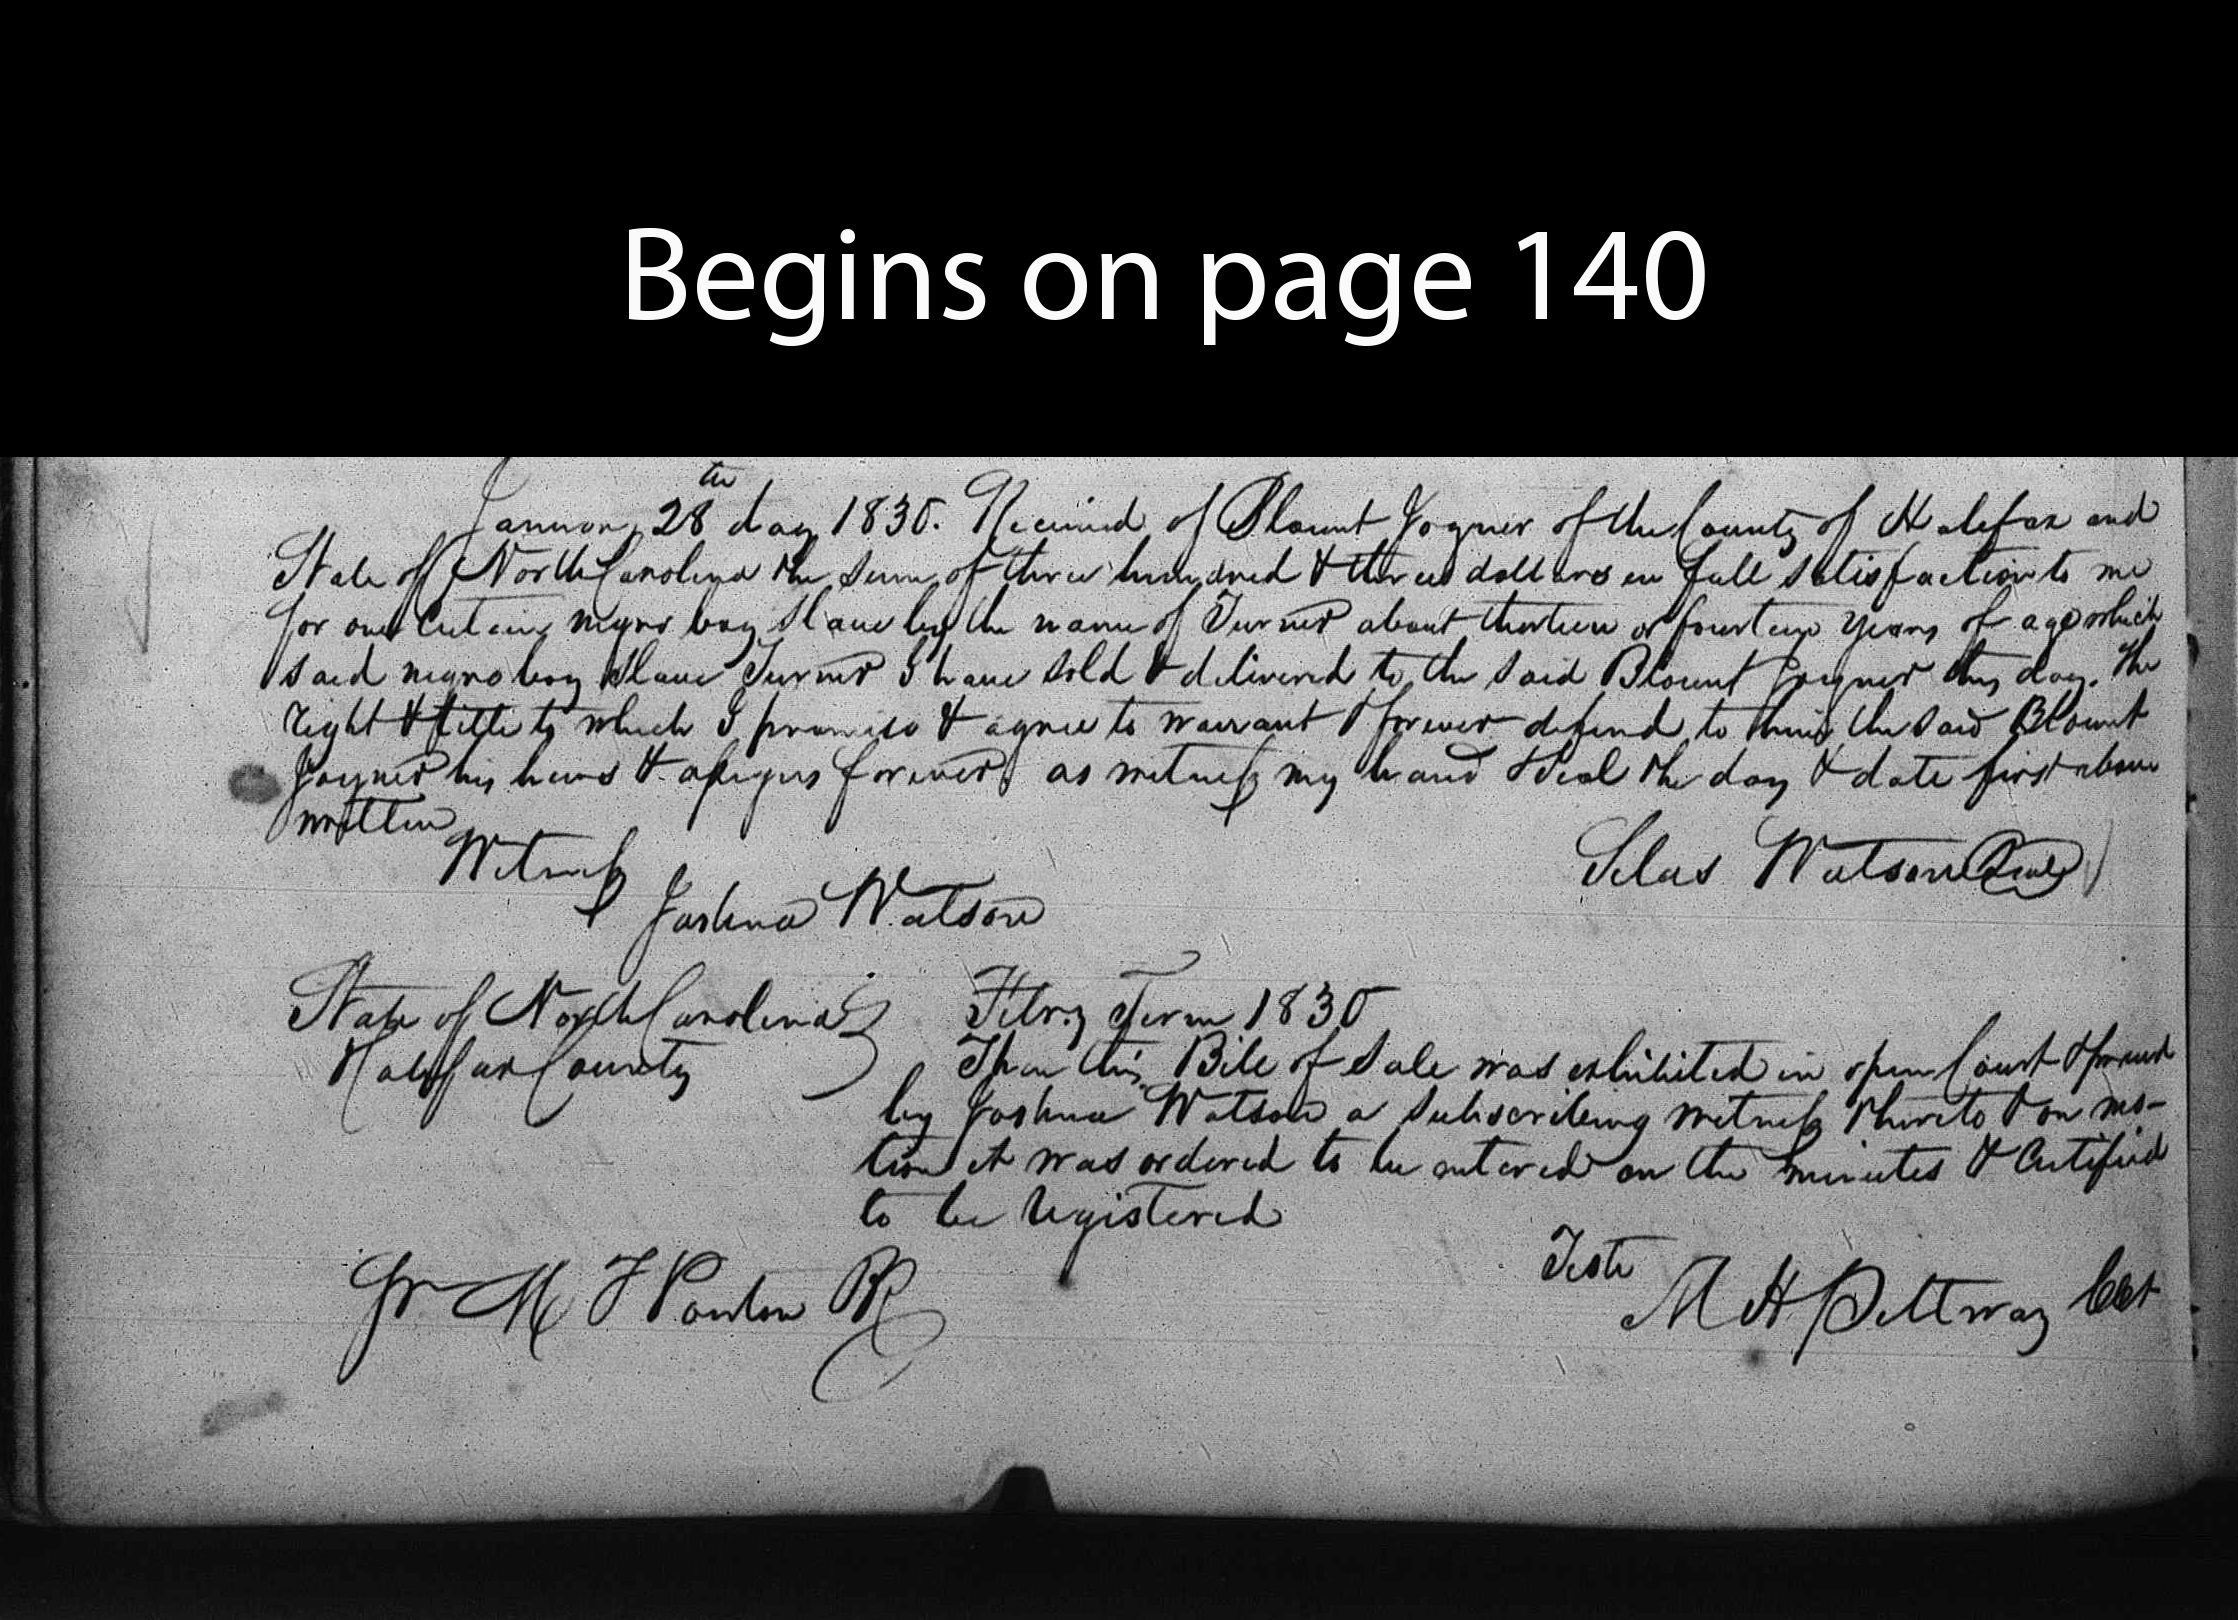 Begins on page 140
January 28th day 1830. Received of Blount Joyner of the County of Halifax and
State of North Carolina the sum of three hundred & three dollars in full satisfaction to me
for one certain negro boy slave by the name of Turner about thirteen or fourteen years of age which
said negro boy slave Turner I have sold & delivered to the said Blount Joyner this day. the
right & title to which I promise & agree to warrant & forever defend to him the said Blount
Joyner his heirs & assigns forever. as witness my hand & seal the day & date first above
written
Silas Watson Seal
Witness
Joshua Watson
State of North Carolina
Halifax County
Feby Term 1830
Then this Bill of Sale was exhibited in open Court & proved
by Joshua Watson a subscribing witness thereto & on mo-
tion it was ordered to be entered on the minutes & Certified
to be registered
Teste
M H Pettway Clk
Jr M F Ponton PR